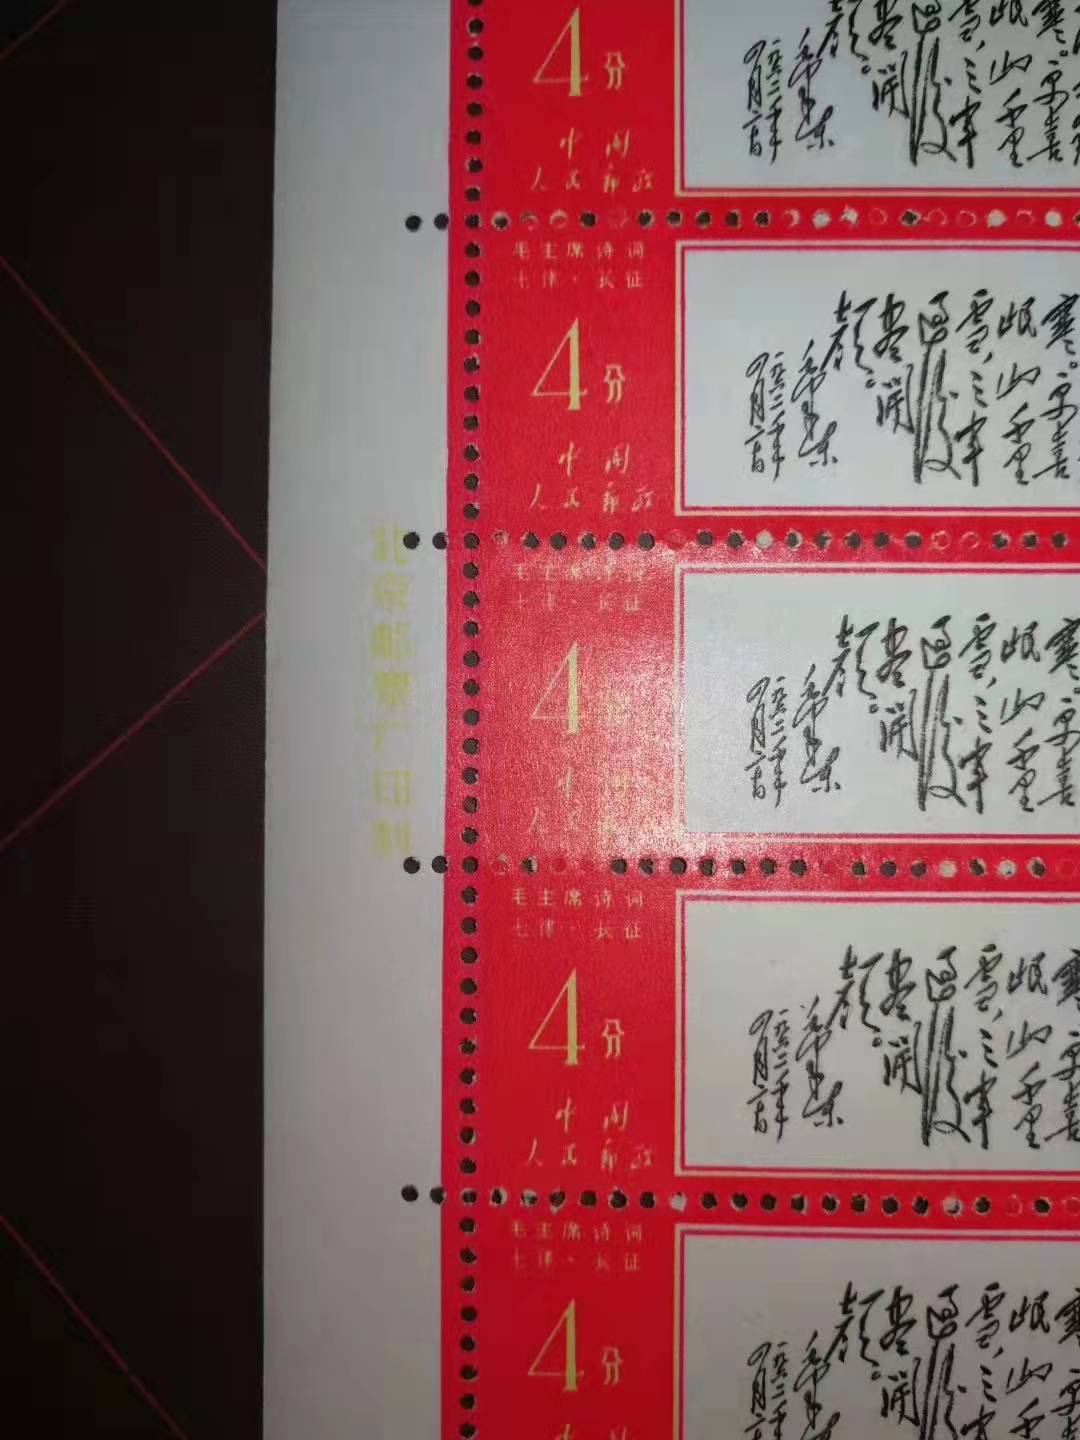 4分
中国
人民邮政
寒。更喜
岷山千里
雪,三军
过後
尽开
颜。
毛泽东
毛主席诗词
七律·长征
4分
中国
人民邮政
寒。更喜
岷山千里
雪,三军
过後
尽开
颜。
毛泽东
北京邮票厂印制
毛主席诗词
七律·长征
4分
中国
人民邮政
寒。更喜
岷山千里
雪,三军
过後
尽开
颜。
毛泽东
毛主席诗词
七律·长征
4分
中国
人民邮政
寒。更喜
岷山千里
雪,三军
过後
尽开
颜。
毛泽东
毛主席诗词
七律·长征
4分
中国
寒。更喜
岷山千
雪,三军
过後
尽开
颜。